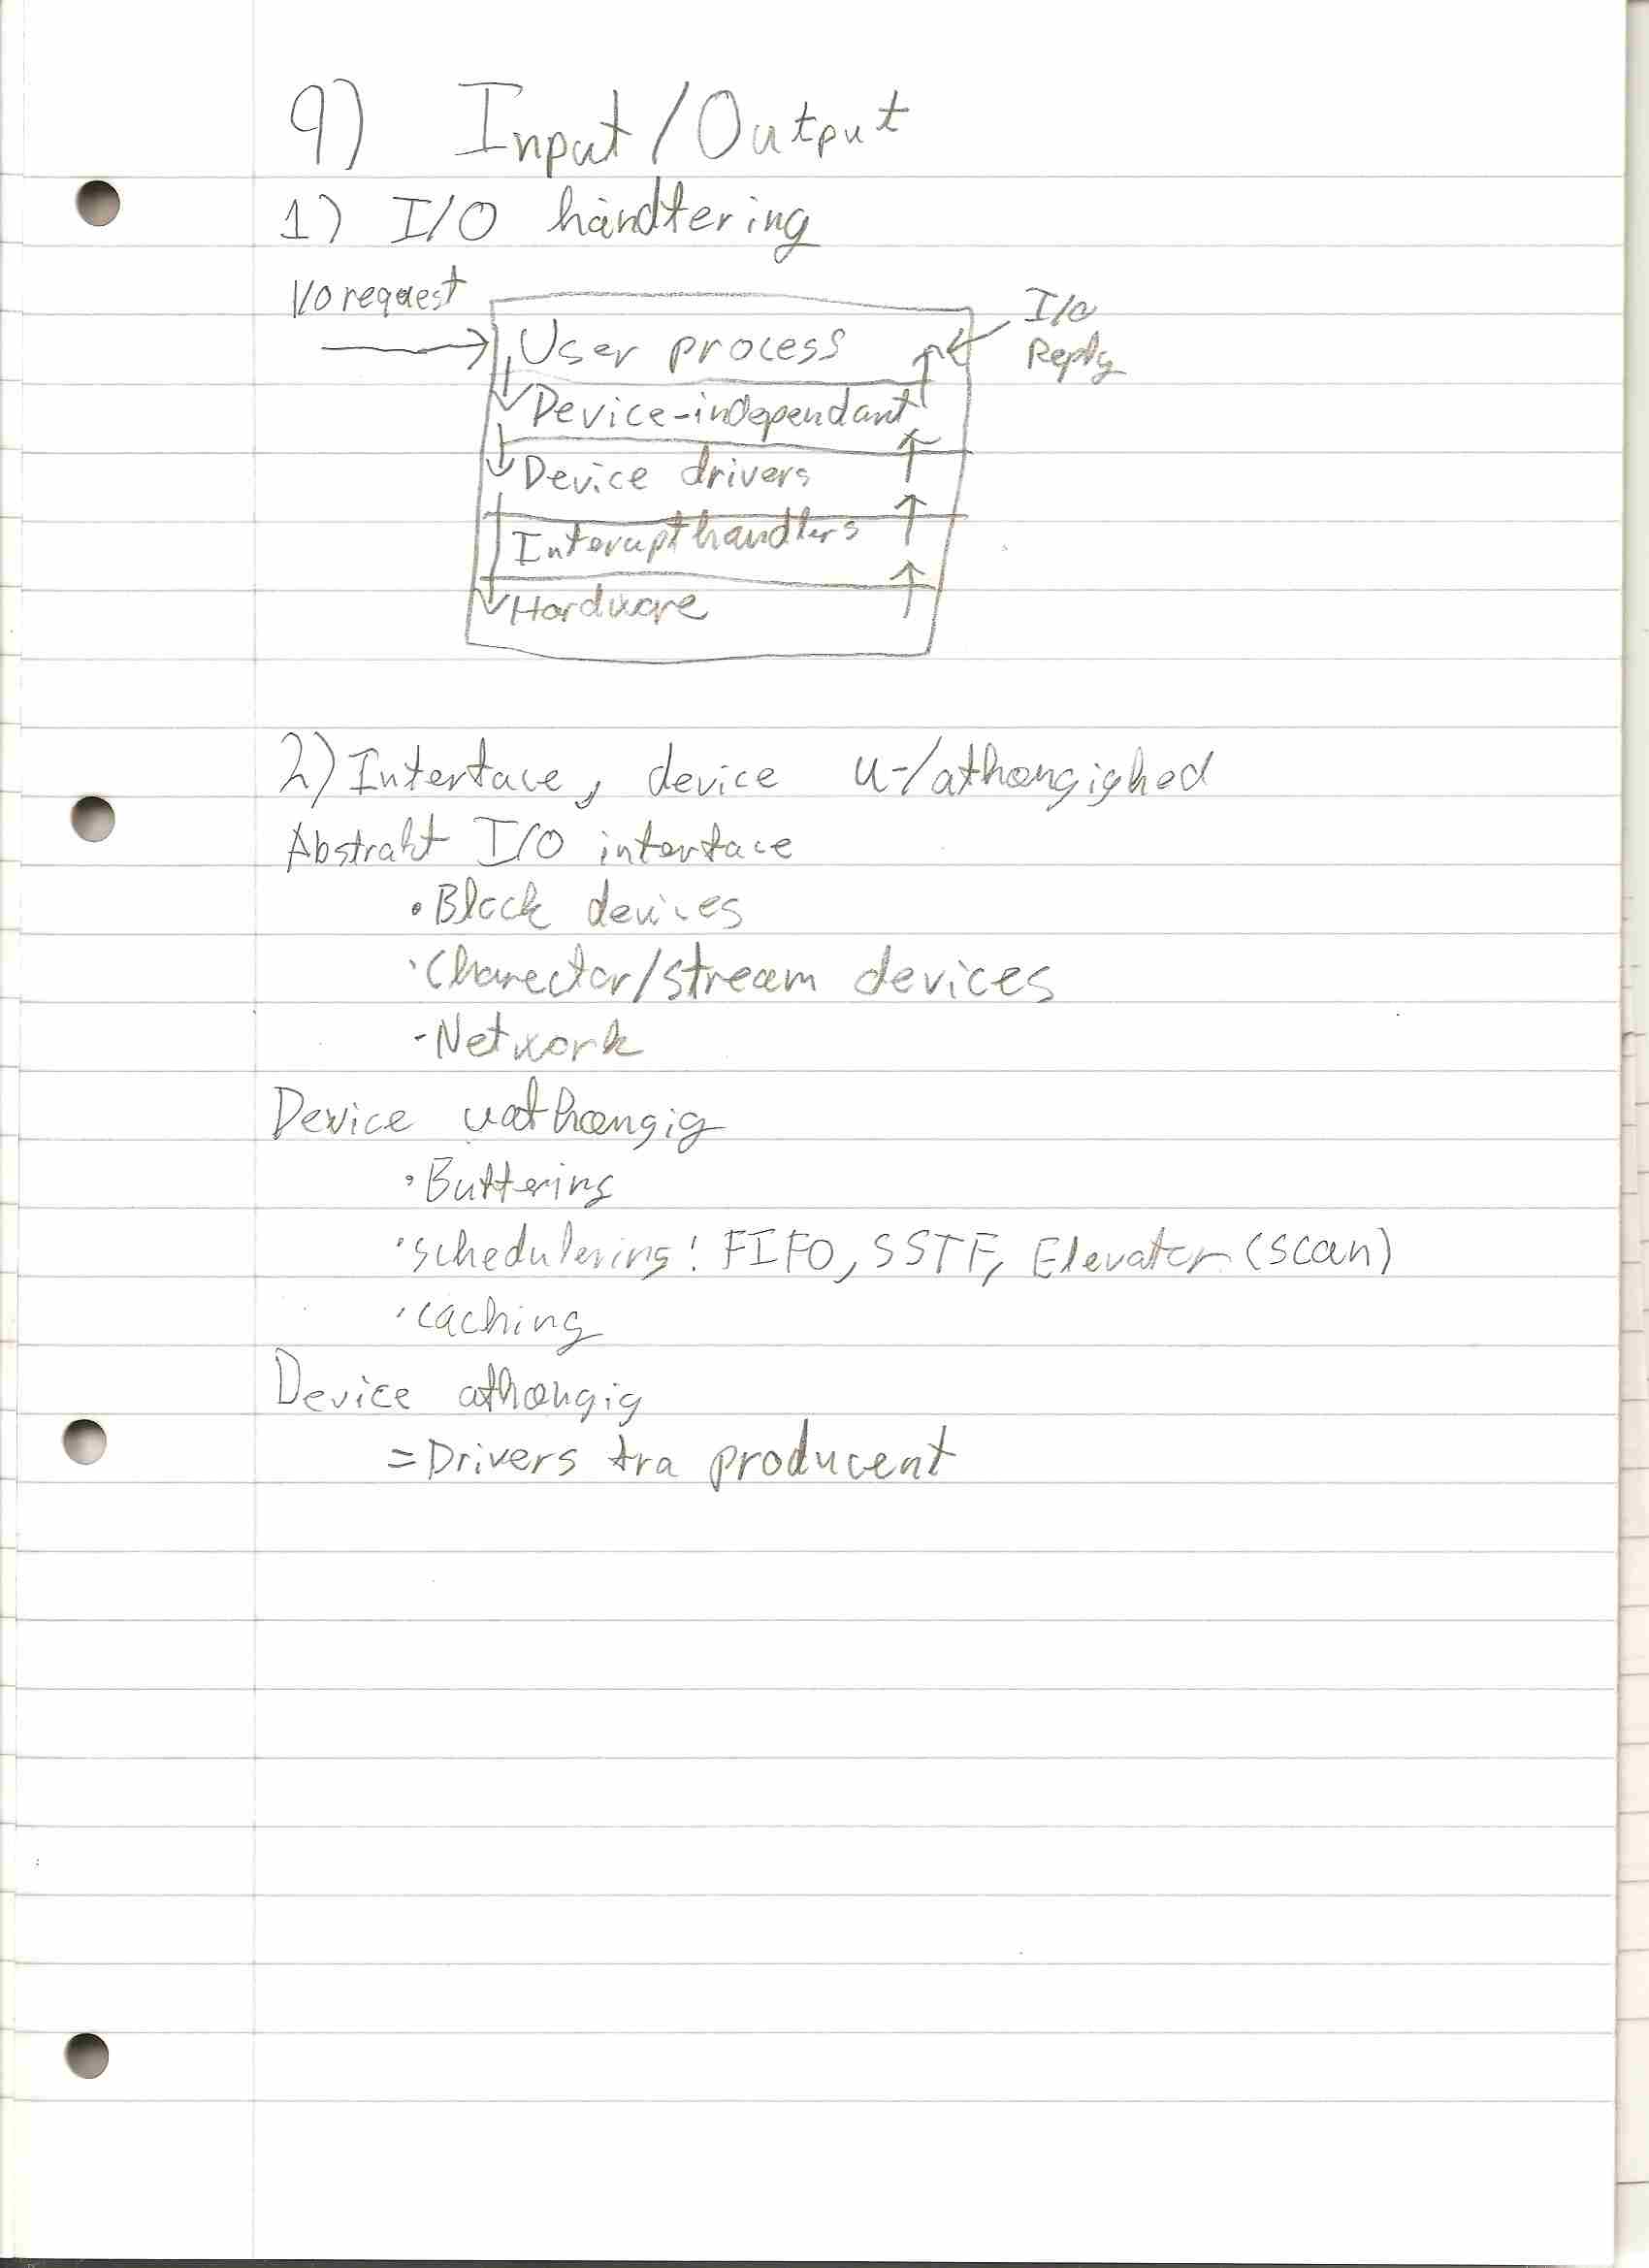 9) Input/Output
1) I/O håndtering
I/O request
I/O
Reply
User process
Device-independant
Device drivers
Interupt handlers
Hardware
2) Interface, device u-/afhængighed
Abstrakt I/O interface
• Block devices
• Charector/stream devices
- Network
Device uafhængig
• Buffering
• schedulering: FIFO, SSTF, Elevator (scan)
• caching
Device afhængig
= Drivers fra producent